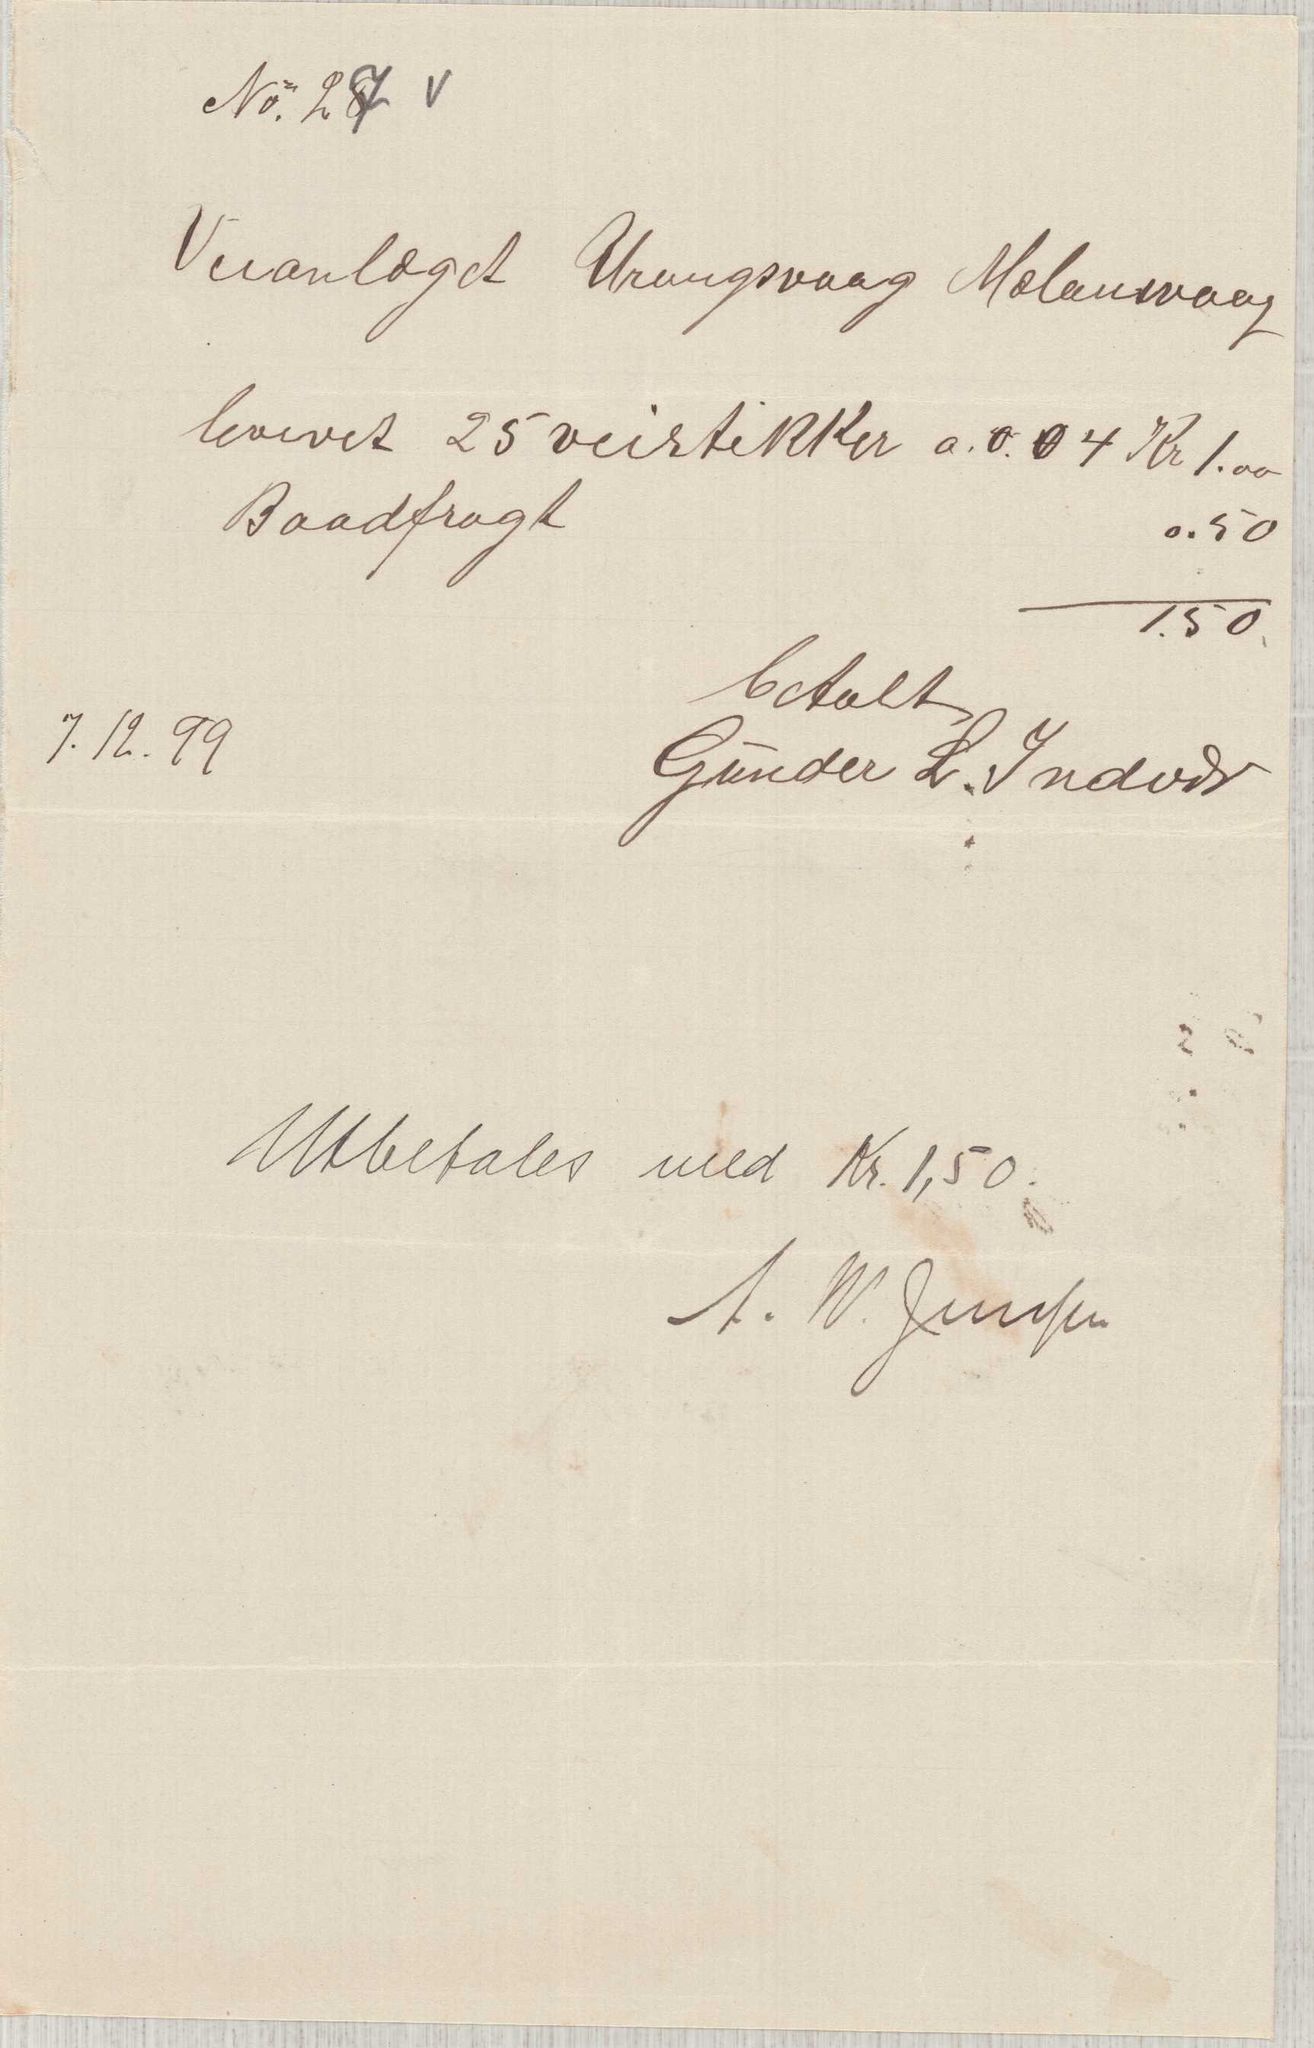 No. 27 v
Veianlæget Urangsvaag Mølanwaag
leveret 25 veistikker a. 0.04 Kr 1.00
Baadfragt 0.50
1.50
betalt
7.12.99 Gunder L. Indvær
Utbetales med Kr. 1,50.
A. W. Jensen